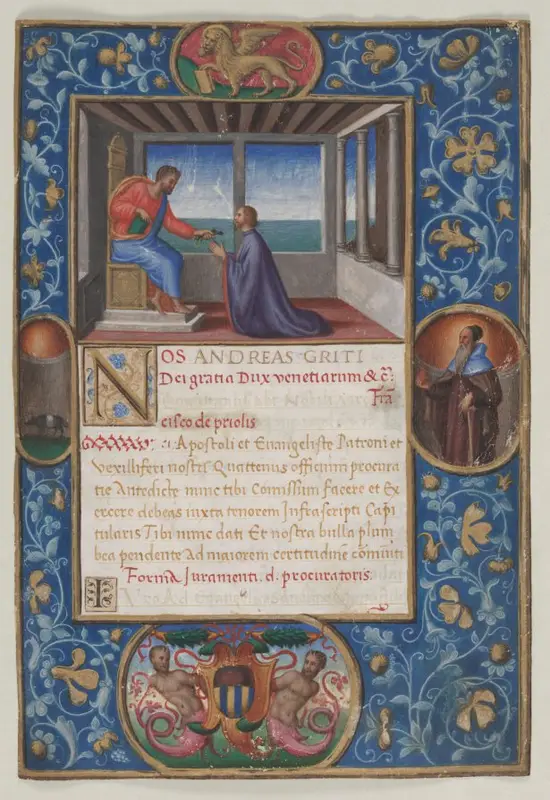 NOS ANDREAS GRITI
Dei gratia Dux venetiarum & c̃:
Frã
cisco de priolis
Apostoli et Evangeliste Patroni et
vexilliferi nostri Quattenus officium procura
tie Antedicte nunc tibi Comissum facere et Ex
ercere debeas iuxta tenorem Infrascripti Capi
tularis Tibi nunc dati Et nostra bulla plum
bea pendente Ad maiorem certitudinẽ cõmuniti
Forma Iuramenti . d . procuratoris
I